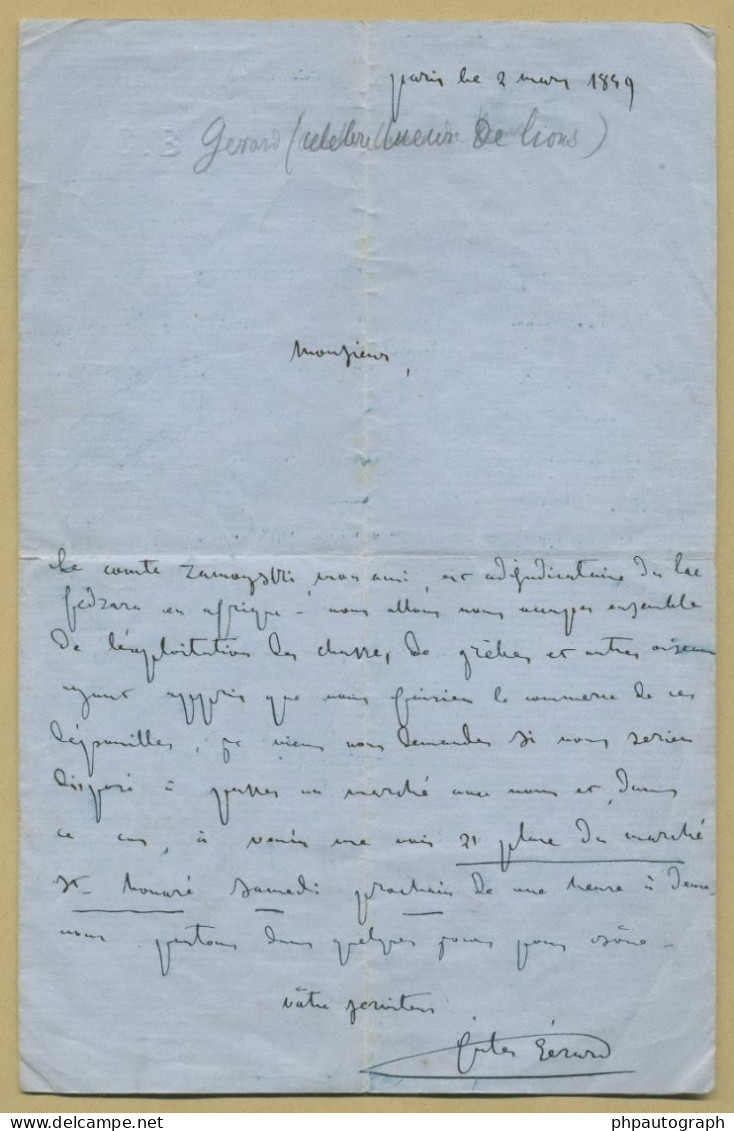 paris le 2 mars 1859
Gerard (célèbre tueur de lions)
Monsieur,
le comte Zamoyski, mon ami, est adjudicataire du lac
fedzara en afrique – nous allons nous occuper ensemble
de l'exploitation des chasses, de grèbes et autres oiseaux
ayant appris que vous faisiez le commerce de ces
dépouilles, je viens vous demander si vous seriez
disposé à passer un marché avec nous et, dans
ce cas, à venir me voir 21 place du marché
St honoré samedi prochain de une heure à deux –
nous partons dans quelques jours pour bône –
vôtre serviteur
Jules Gérard
delcampe.net
phpautograph